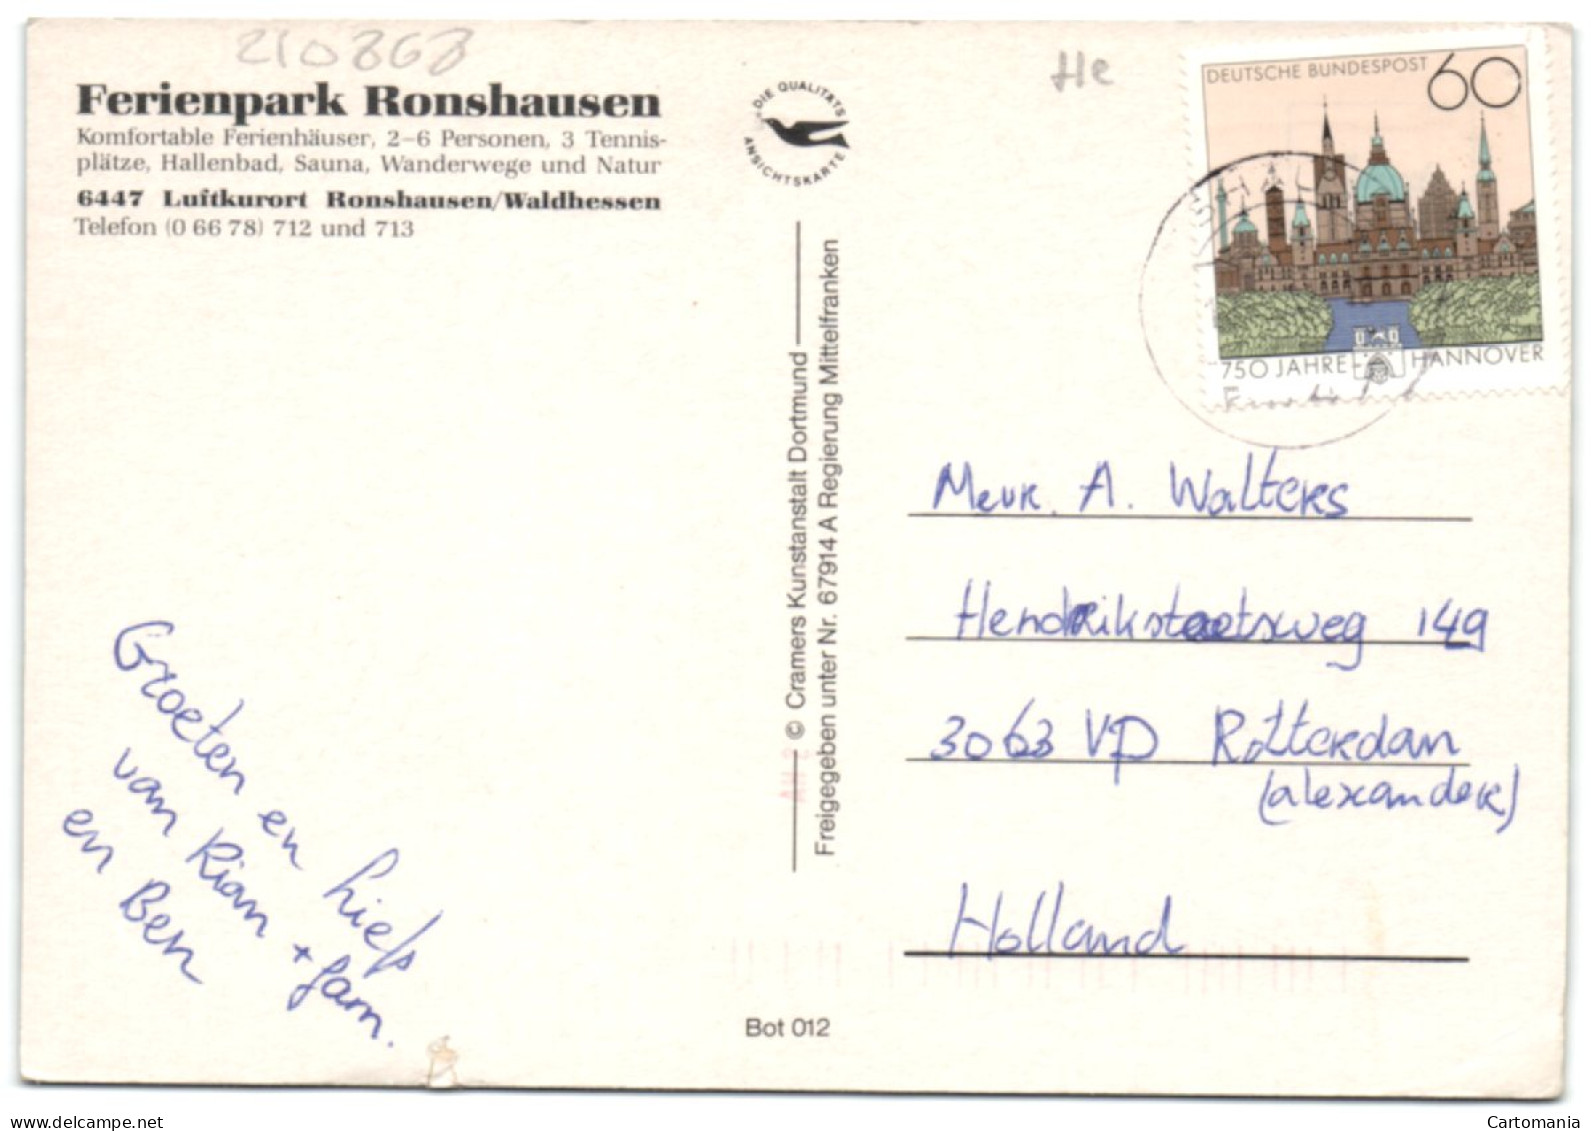 210868
Ferienpark Ronshausen
Komfortable Ferienhäuser, 2–6 Personen, 3 Tennis-
plätze, Hallenbad, Sauna, Wanderwege und Natur
6447 Luftkurort Ronshausen/Waldhessen
Telefon (0 66 78) 712 und 713
Groeten en liefs
van Rian + fam.
en Ben
DIE QUALITÄTS
ANSICHTSKARTE
© Cramers Kunstanstalt Dortmund
Freigegeben unter Nr. 67914 A Regierung Mittelfranken
Bot 012
He
DEUTSCHE BUNDESPOST 60
750 JAHRE HANNOVER
Mevr. A. Walters
Hendrikstaetsweg 149
3063 VP Rotterdam
(alexander)
Holland
Cartomania